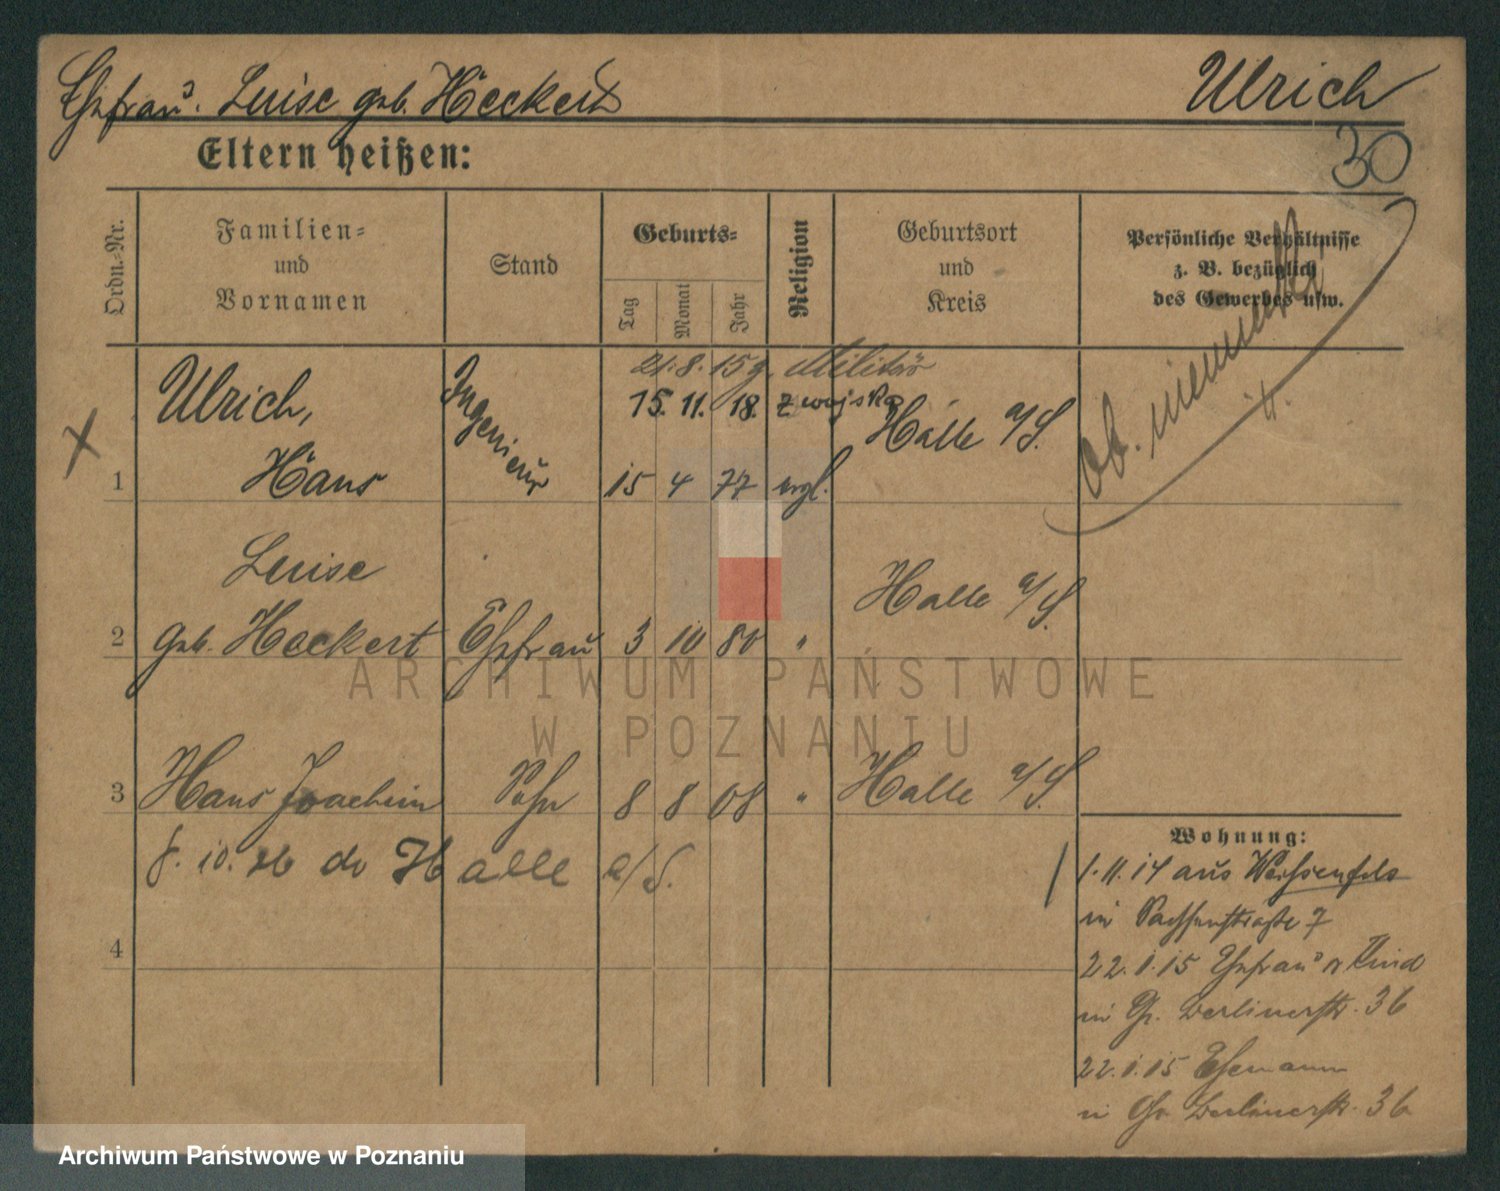 Ehefrau. Luise geb. Heckert
Ulrich
30
Eltern heißen:
Ordn.-Nr.
Familien-
und
Vornamen
Stand
Geburts-
Tag
Monat
Jahr
Religion
Geburtsort
und
Kreis
Persönliche Verhältnisse
z. B. bezüglich
des Gewerbes usw.
ob. niemiecki
21.8.15 z. Militär
15. 11. 18. z wojska
1 Ulrich,
Hans
Ingenieur
15 4 77 evgl.
Halle a/S.
2 Luise
geb. Heckert
Ehefrau
3 10 80 "
Halle a/S.
3 Hans Joachim
Sohn
8 8 08 "
Halle a/S.
8. 10. 26 do Halle a/S.
4
Wohnung:
1.11.14 aus Weißenfels
in Sachsenstraße 7
22.1.15 Ehefrau u Kind
in Gr. Berlinerstr. 36
22.1.15 Ehemann
in Gr Berlinerstr. 36
ARCHIWUM PAŃSTWOWE
W POZNANIU
Archiwum Państwowe w Poznaniu